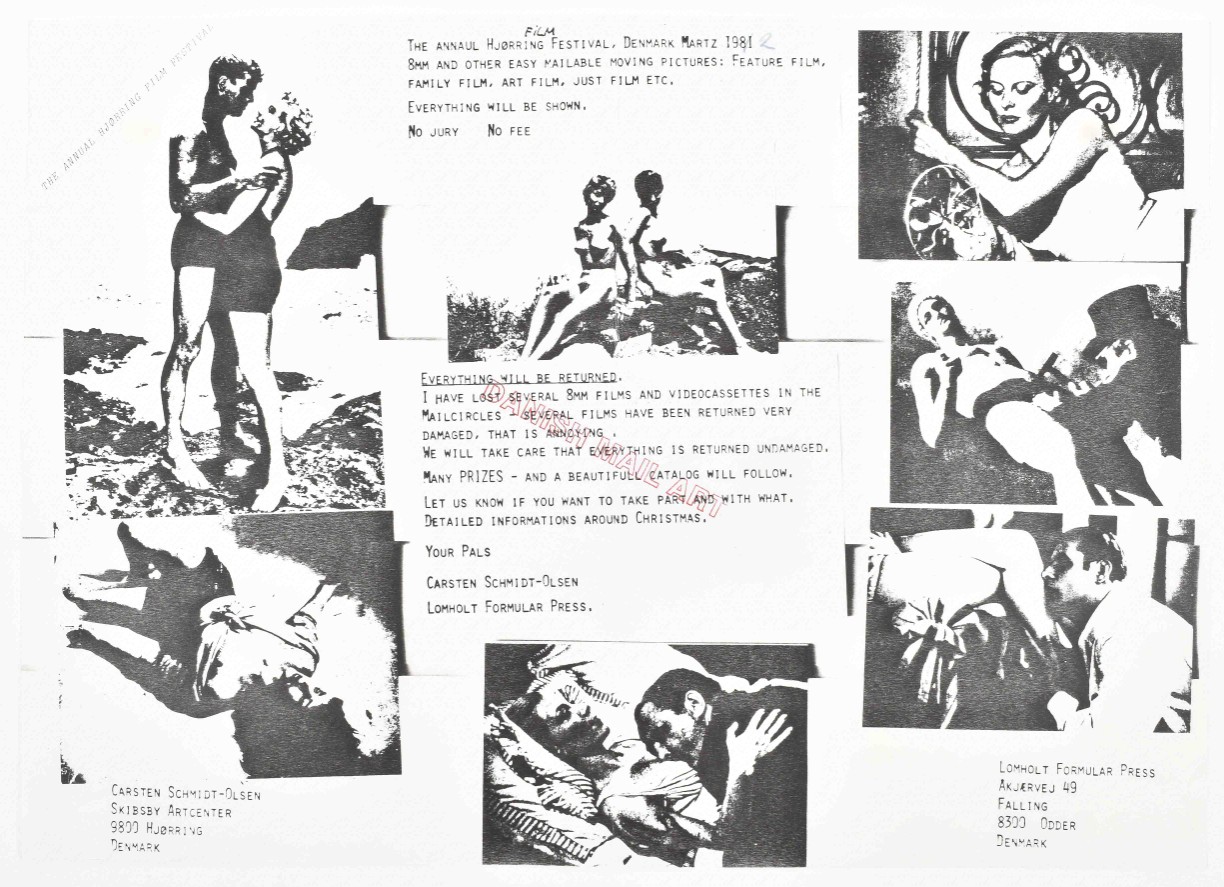 THE ANNUAL HJØRRING FILM FESTIVAL
FILM
THE ANNAUL HJØRRING FESTIVAL, DENMARK MARTZ 1981 2
8MM AND OTHER EASY MAILABLE MOVING PICTURES: FEATURE FILM,
FAMILY FILM, ART FILM, JUST FILM ETC.
EVERYTHING WILL BE SHOWN.
NO JURY NO FEE
EVERYTHING WILL BE RETURNED.
I HAVE LOST SEVERAL 8MM FILMS AND VIDEOCASSETTES IN THE
MAILCIRCLES - SEVERAL FILMS HAVE BEEN RETURNED VERY
DAMAGED, THAT IS ANNOYING .
WE WILL TAKE CARE THAT EVERYTHING IS RETURNED UNDAMAGED.
MANY PRIZES - AND A BEAUTIFULL CATALOG WILL FOLLOW.
LET US KNOW IF YOU WANT TO TAKE PART AND WITH WHAT.
DETAILED INFORMATIONS AROUND CHRISTMAS.
DANISH MAIL ART
YOUR PALS
CARSTEN SCHMIDT-OLSEN
LOMHOLT FORMULAR PRESS.
CARSTEN SCHMIDT-OLSEN
SKIBSBY ARTCENTER
9800 HJØRRING
DENMARK
LOMHOLT FORMULAR PRESS
AKJÆRVEJ 49
FALLING
8300 ODDER
DENMARK